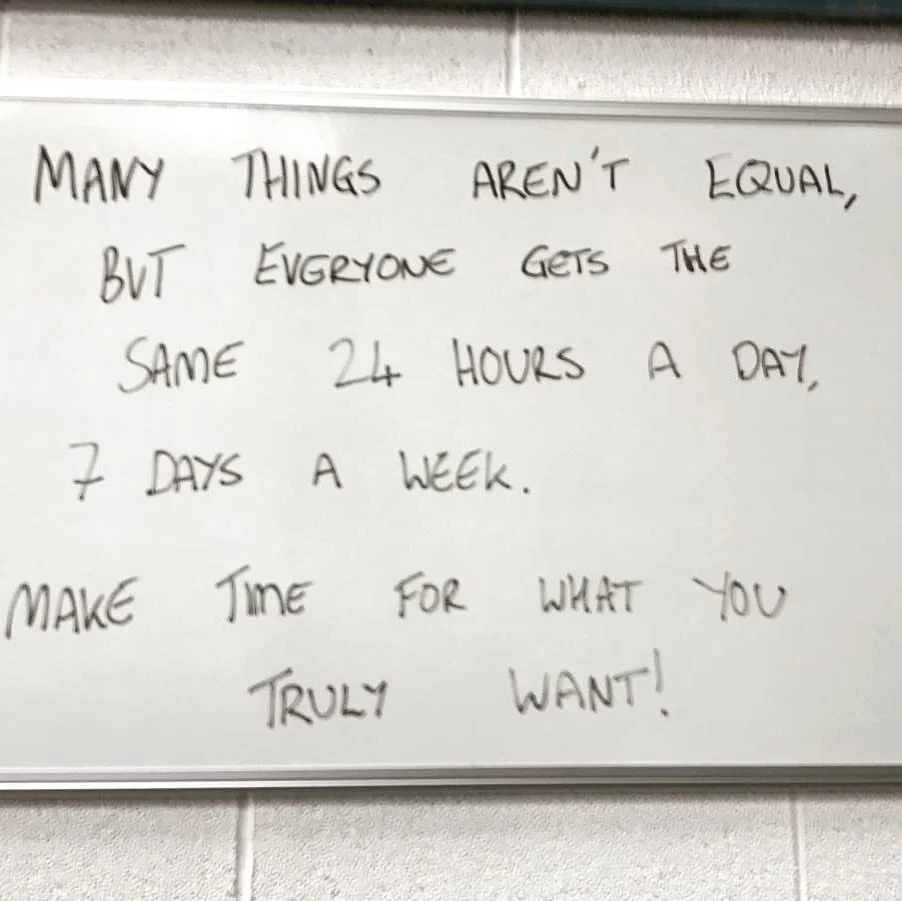 MANY THINGS AREN'T EQUAL,
BUT EVERYONE GETS THE
SAME 24 HOURS A DAY,
7 DAYS A WEEK.
MAKE TIME FOR WHAT YOU
TRULY WANT!